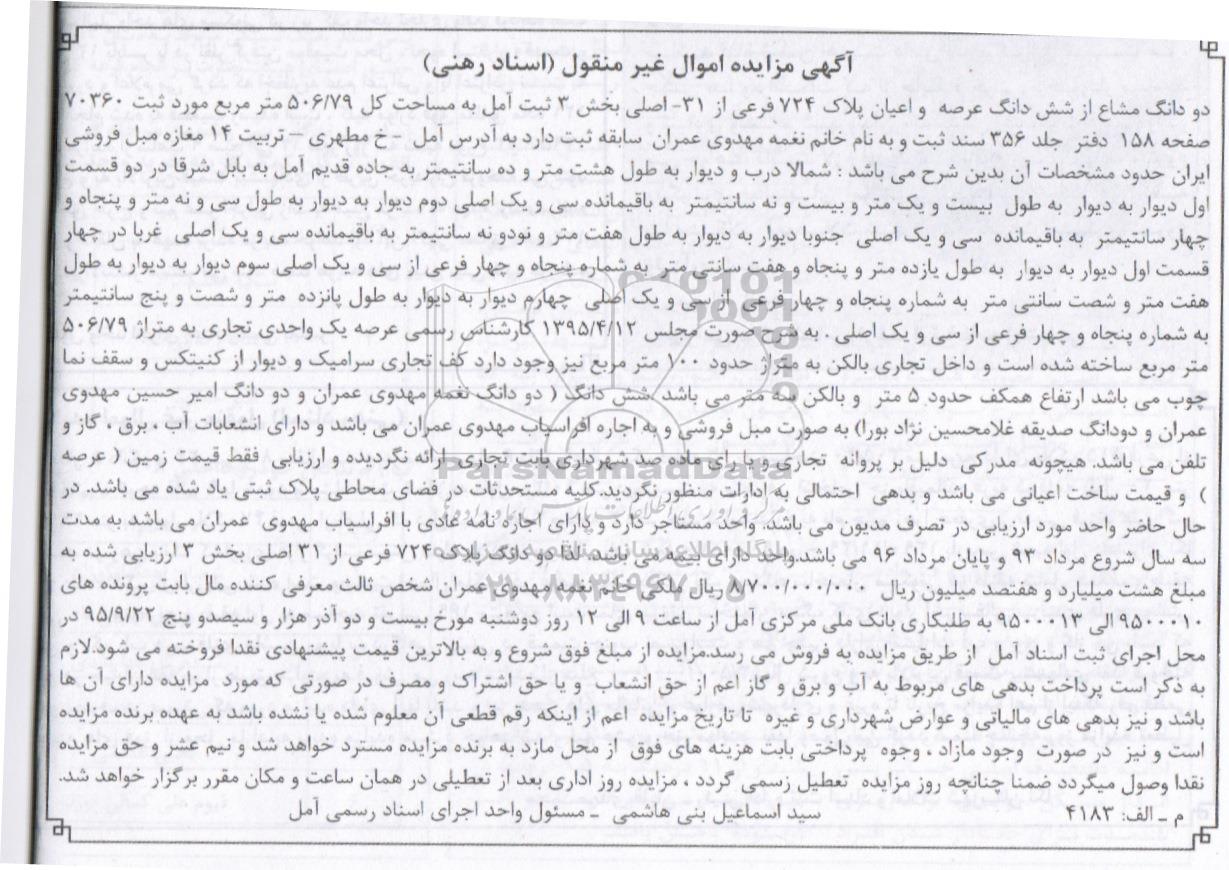 آگهی مزایده اموال غیر منقول (اسناد رهنی)
دو دانگ مشاع از شش دانگ عرصه و اعیان پلاک ۷۲۴ فرعی از ۳۱- اصلی بخش ۳ ثبت آمل به مساحت کل ۵۰۶/۷۹ متر مربع مورد ثبت ۷۰۳۶۰
صفحه ۱۵۸ دفتر جلد ۳۵۶ سند ثبت و به نام خانم نغمه مهدوی عمران سابقه ثبت دارد به آدرس آمل - خ مطهری – تربیت ۱۴ مغازه مبل فروشی
ایران حدود مشخصات آن بدین شرح می باشد : شمالا درب و دیوار به طول هشت متر و ده سانتیمتر به جاده قدیم آمل به بابل شرقا در دو قسمت
اول دیوار به دیوار به طول بیست و یک متر و بیست و نه سانتیمتر به باقیمانده سی و یک اصلی دوم دیوار به دیوار به طول سی و نه متر و پنجاه و
چهار سانتیمتر به باقیمانده سی و یک اصلی جنوبا دیوار به دیوار به طول هفت متر و نودو نه سانتیمتر به باقیمانده سی و یک اصلی غربا در چهار
قسمت اول دیوار به دیوار به طول یازده متر و پنجاه و هفت سانتی متر به شماره پنجاه و چهار فرعی از سی و یک اصلی سوم دیوار به دیوار به طول
هفت متر و شصت سانتی متر به شماره پنجاه و چهار فرعی از سی و یک اصلی چهارم دیوار به دیوار به طول پانزده متر و شصت و پنج سانتیمتر
به شماره پنجاه و چهار فرعی از سی و یک اصلی . به شرح صورت مجلس ۱۳۹۵/۴/۱۲ کارشناس رسمی عرصه یک واحدی تجاری به متراژ ۵۰۶/۷۹
متر مربع ساخته شده است و داخل تجاری بالکن به متراژ حدود ۱۰۰ متر مربع نیز وجود دارد کف تجاری سرامیک و دیوار از کنیتکس و سقف نما
چوب می باشد ارتفاع همکف حدود ۵ متر و بالکن سه متر می باشد شش دانگ ( دو دانگ نغمه مهدوی عمران و دو دانگ امیر حسین مهدوی
عمران و دودانگ صدیقه غلامحسین نژاد بورا) به صورت مبل فروشی و به اجاره افراسیاب مهدوی عمران می باشد و دارای انشعابات آب ، برق ، گاز و
تلفن می باشد. هیچونه مدرکی دلیل بر پروانه تجاری و یا رای ماده صد شهرداری بابت تجاری ارائه نگردیده و ارزیابی فقط قیمت زمین ( عرصه
) و قیمت ساخت اعیانی می باشد و بدهی احتمالی به ادارات منظور نگردید.کلیه مستحدثات در فضای محاطی پلاک ثبتی یاد شده می باشد. در
حال حاضر واحد مورد ارزیابی در تصرف مدیون می باشد. واحد مستاجر دارد و دارای اجاره نامه عادی با افراسیاب مهدوی عمران می باشد به مدت
سه سال شروع مرداد ۹۳ و پایان مرداد ۹۶ می باشد.واحد دارای بیمه می باشد. لذا دو دانگ پلاک ۷۲۴ فرعی از ۳۱ اصلی بخش ۳ ارزیابی شده به
مبلغ هشت میلیارد و هفتصد میلیون ریال ۸/۷۰۰/۰۰۰/۰۰۰ ریال ملکی خانم نغمه مهدوی عمران شخص ثالث معرفی کننده مال بابت پرونده های
۹۵۰۰۰۱۰ الی ۹۵۰۰۰۱۳ به طلبکاری بانک ملی مرکزی آمل از ساعت ۹ الی ۱۲ روز دوشنبه مورخ بیست و دو آذر هزار و سیصدو پنج ۹۵/۹/۲۲ در
محل اجرای ثبت اسناد آمل از طریق مزایده به فروش می رسد.مزایده از مبلغ فوق شروع و به بالاترین قیمت پیشنهادی نقدا فروخته می شود.لازم
به ذکر است پرداخت بدهی های مربوط به آب و برق و گاز اعم از حق انشعاب و یا حق اشتراک و مصرف در صورتی که مورد مزایده دارای آن ها
باشد و نیز بدهی های مالیاتی و عوارض شهرداری و غیره تا تاریخ مزایده اعم از اینکه رقم قطعی آن معلوم شده یا نشده باشد به عهده برنده مزایده
است و نیز در صورت وجود مازاد ، وجوه پرداختی بابت هزینه های فوق از محل مازد به برنده مزایده مسترد خواهد شد و نیم عشر و حق مزایده
نقدا وصول میگردد ضمنا چنانچه روز مزایده تعطیل رسمی گردد ، مزایده روز اداری بعد از تعطیلی در همان ساعت و مکان مقرر برگزار خواهد شد.
م ـ الف: ۴۱۸۳ سید اسماعیل بنی هاشمی ـ مسئول واحد اجرای اسناد رسمی آمل
ParsNamadData